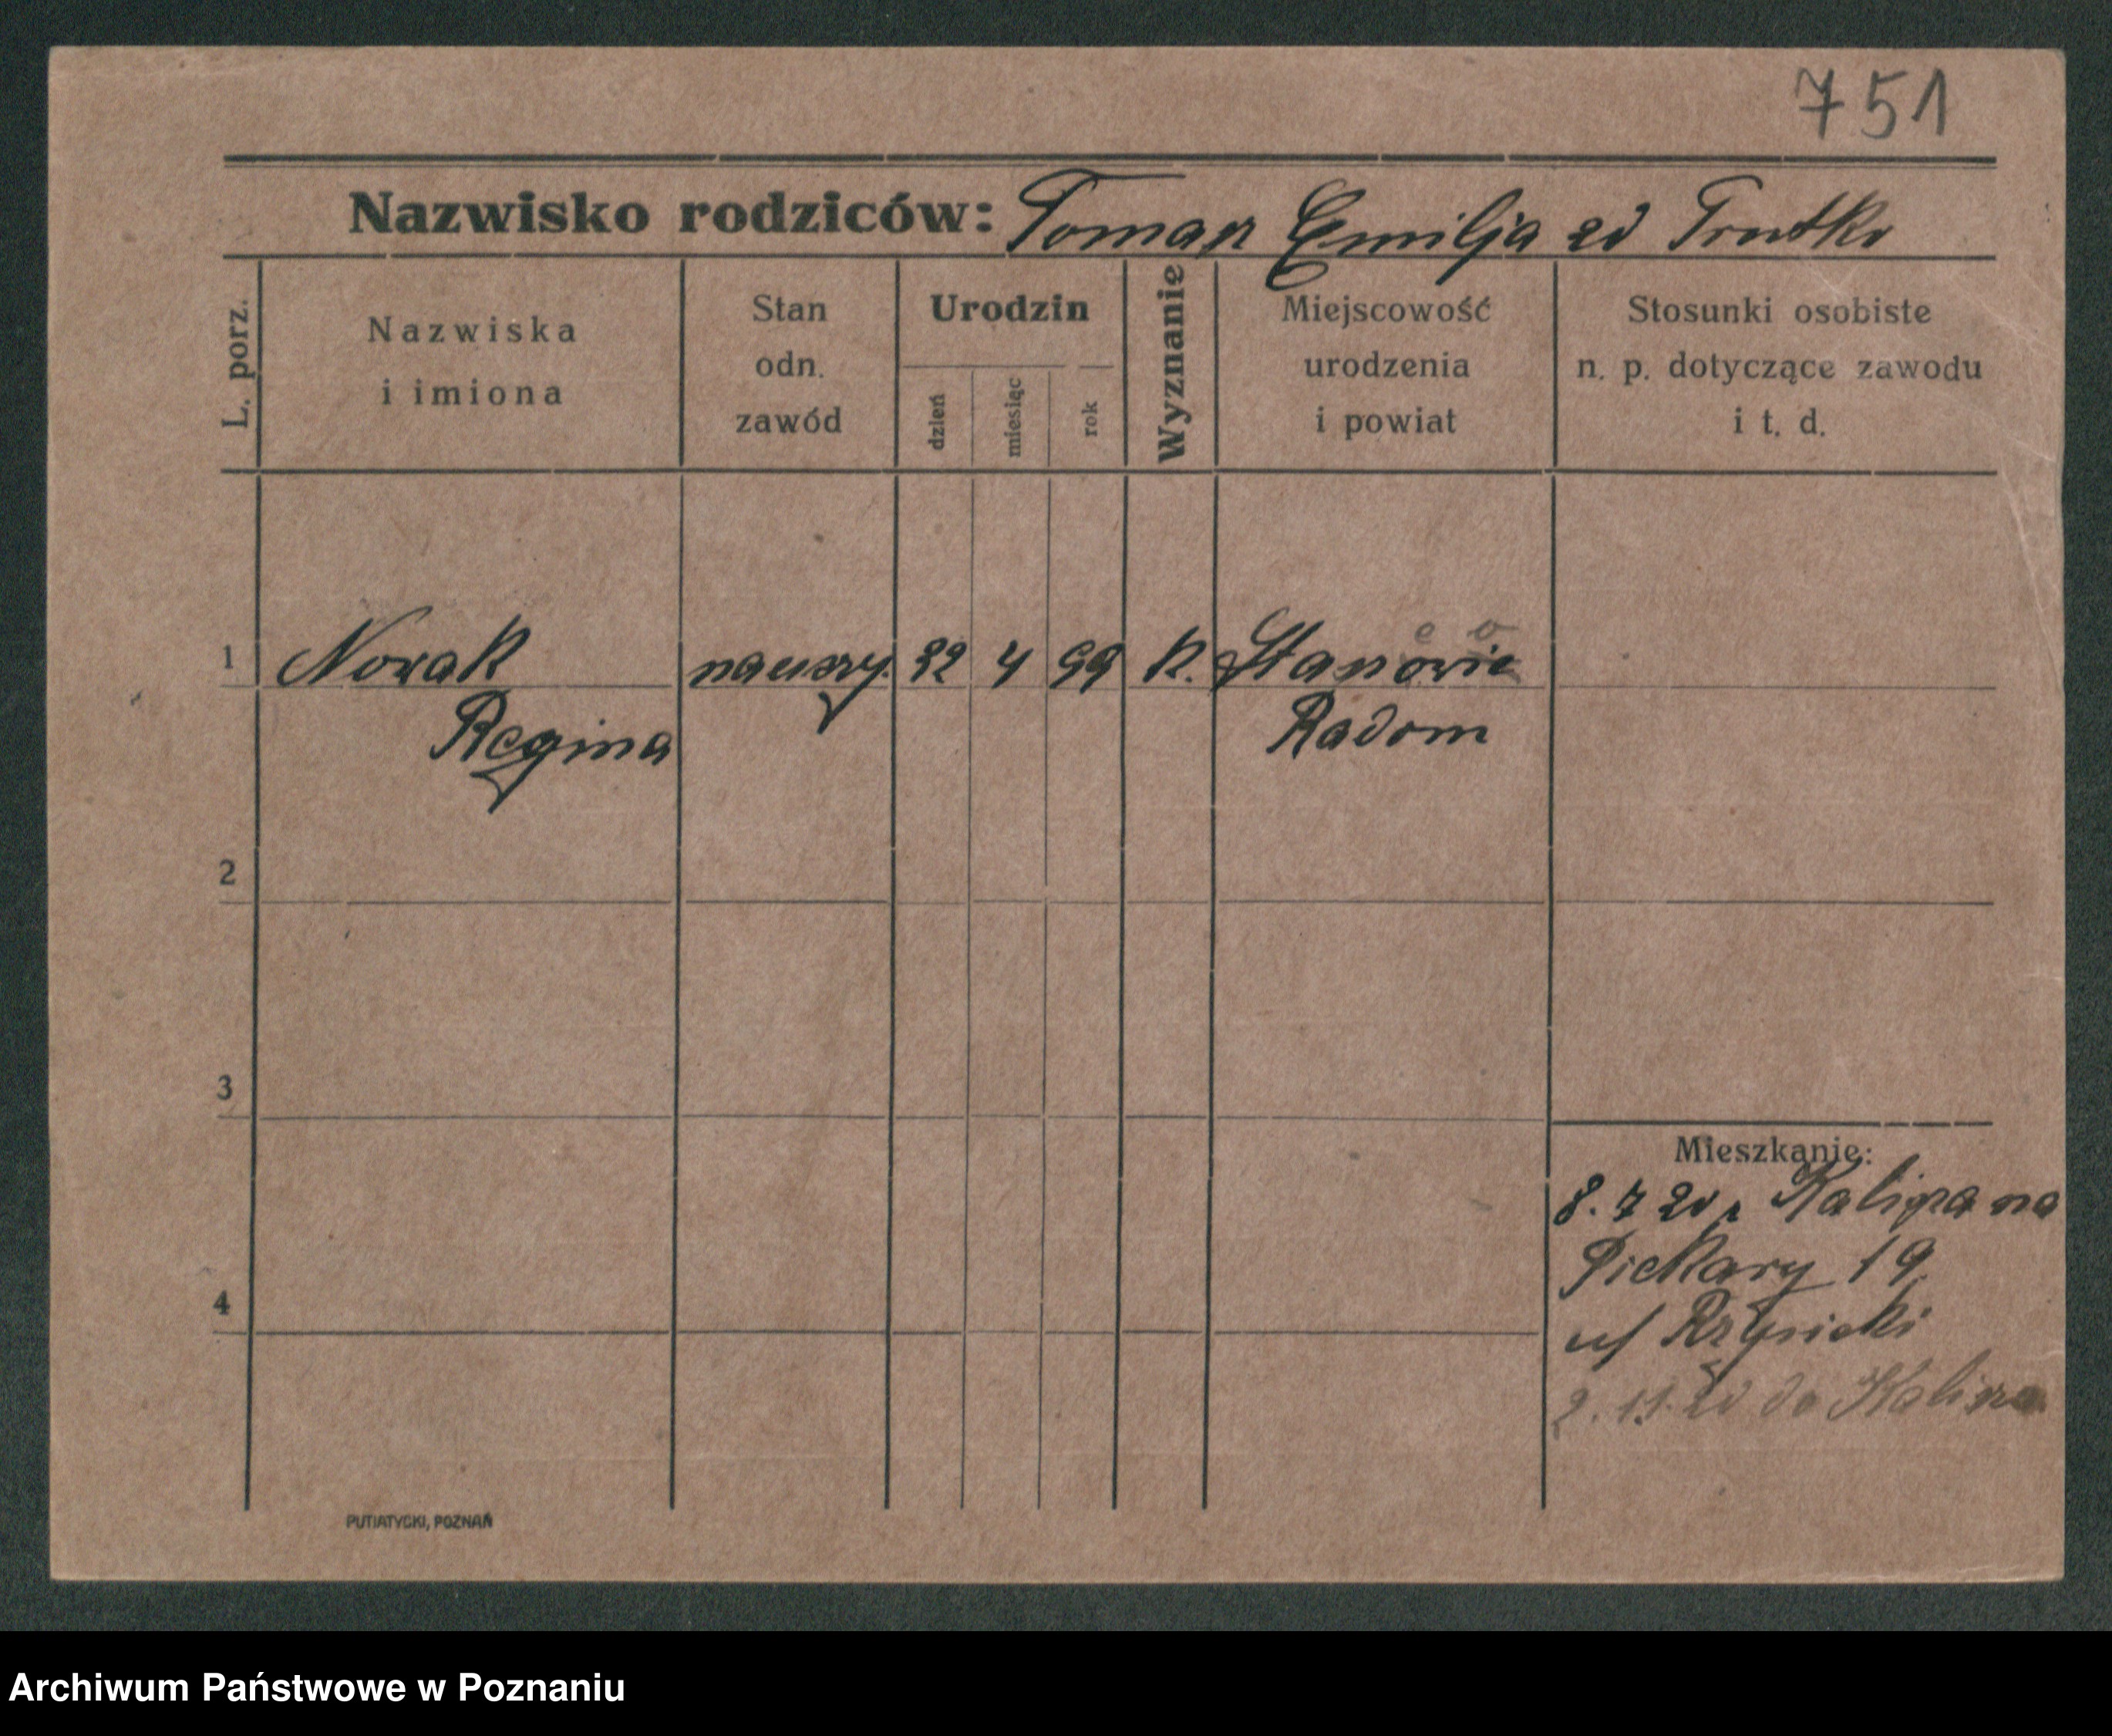 751
Nazwisko rodziców: Toman Emilja zd
L. porz.
Nazwiska
i imiona
Stan
odn.
zawód
Urodzin
dzień
miesiąc
rok
Wyznanie
Miejscowość
urodzenia
i powiat
Stosunki osobiste
n. p. dotyczące zawodu
i t. d.
1 Nowak nauczy. 22 4 99 K.
Regina Radom
2
3
4
Mieszkanie:
8. 7 20 z Kalisza na
Piekary 19
u/
2. 11. 20 do Kalisza
PUTIATYCKI, POZNAŃ
Archiwum Państwowe w Poznaniu